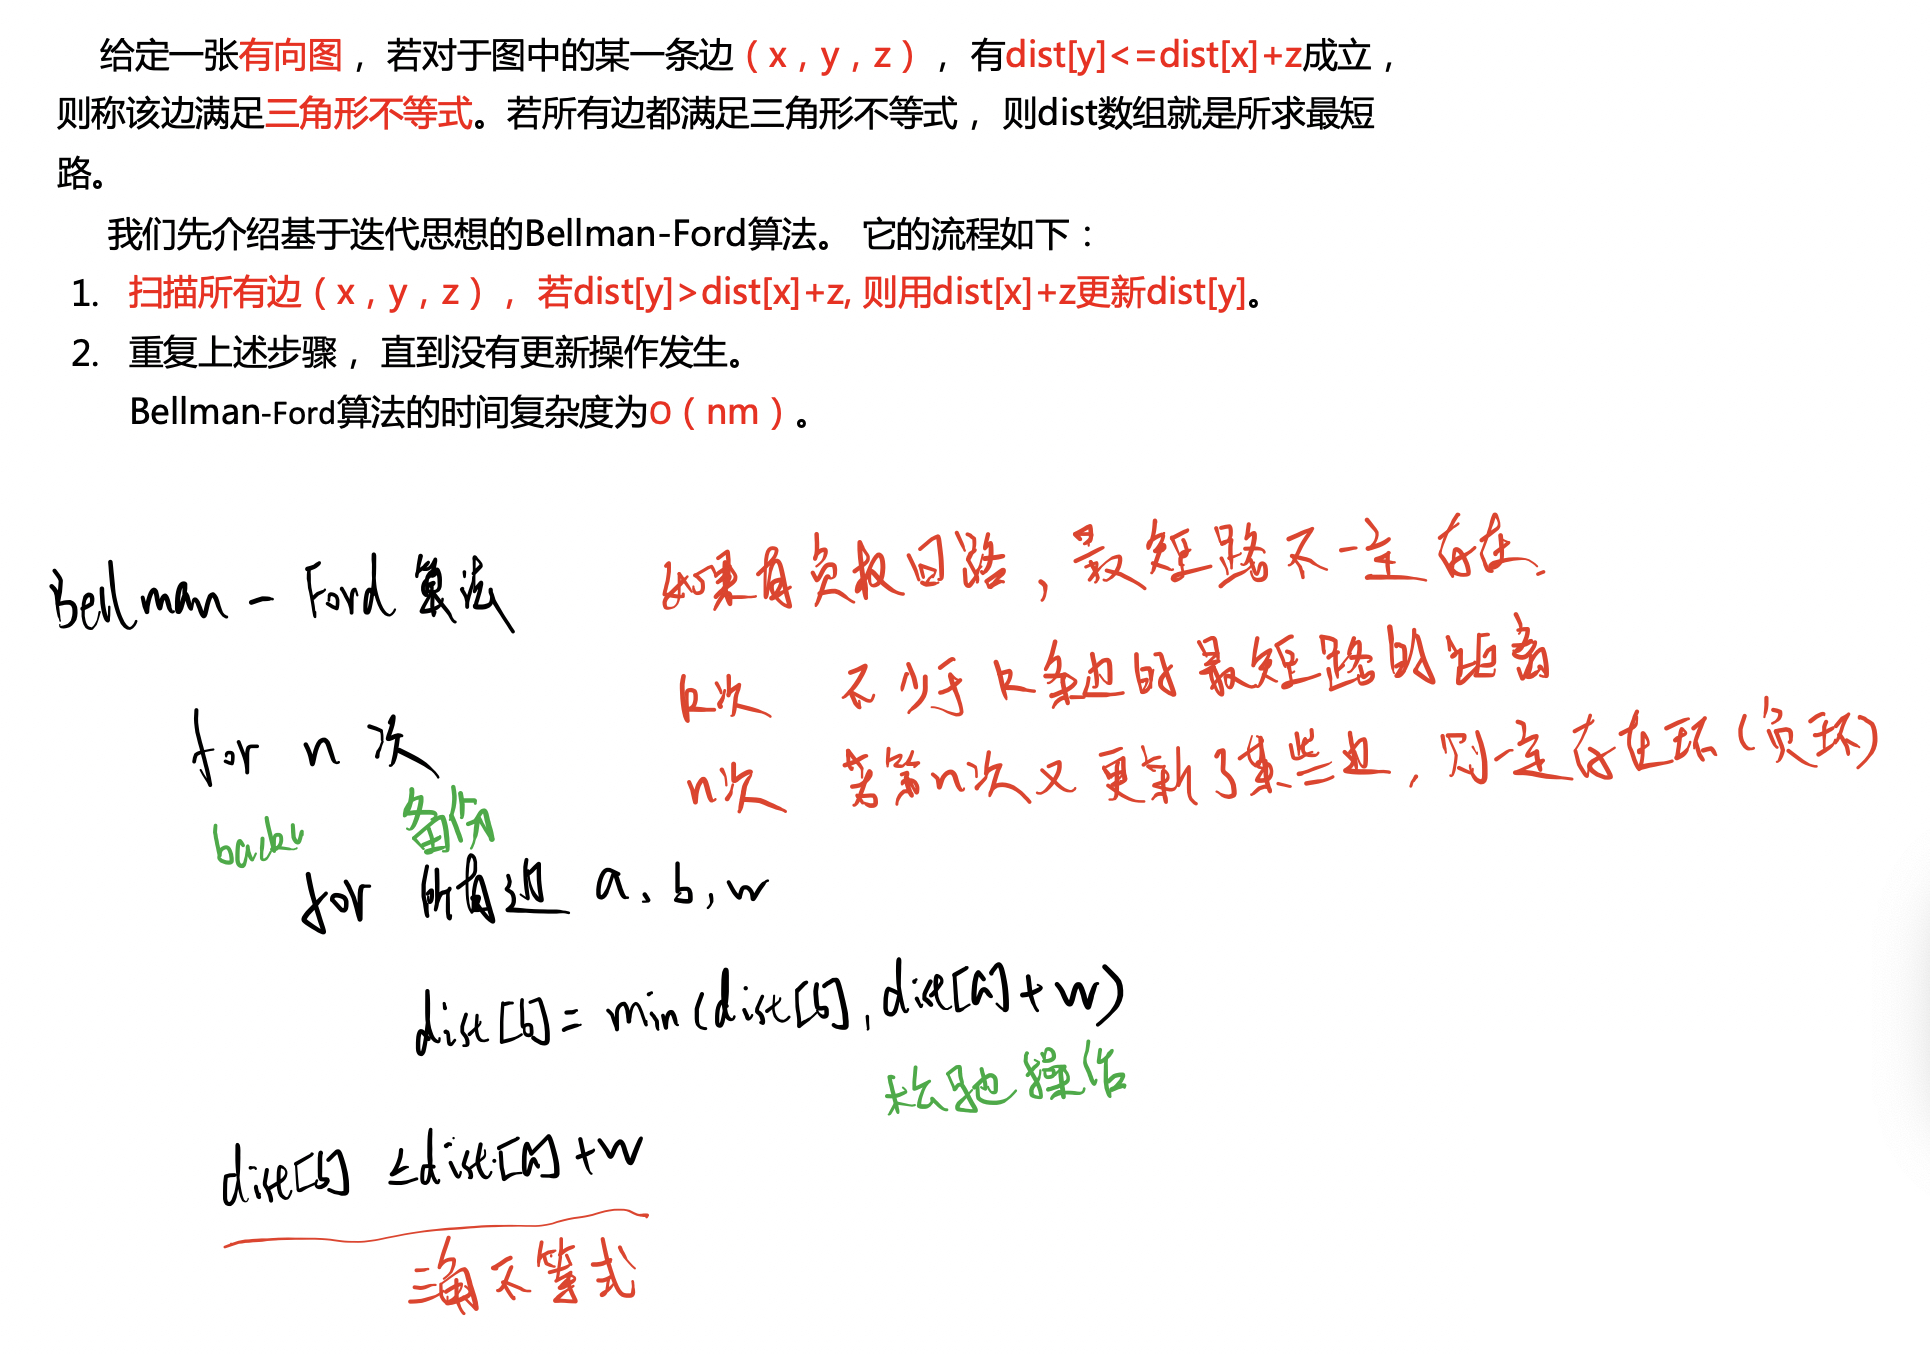 给定一张有向图， 若对于图中的某一条边（x，y，z）， 有dist[y]<=dist[x]+z成立，
则称该边满足三角形不等式。若所有边都满足三角形不等式， 则dist数组就是所求最短
路。
我们先介绍基于迭代思想的Bellman-Ford算法。 它的流程如下：
1. 扫描所有边（x，y，z）， 若dist[y]>dist[x]+z, 则用dist[x]+z更新dist[y]。
2. 重复上述步骤， 直到没有更新操作发生。
Bellman-Ford算法的时间复杂度为O（nm）。
Bellman - Ford 算法
如果有负权回路，最短路不一定存在.
k次 不少于k条边的最短路的距离
for n 次
n次 若第n次又更新了某些边，则一定存在环(负环)
back 备份
for 所有边 a、b, w
dist[b] = min(dist[b], dist[a]+w)
松弛操作
dist[b] ≤ dist[a]+w
三角不等式